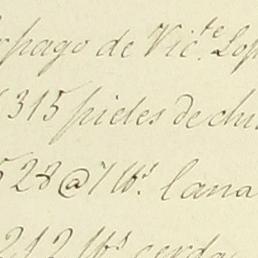 pago de Vic.te Lop
315 pieles de chi
528 @ 7 lbs. lana
212 lbs cerda